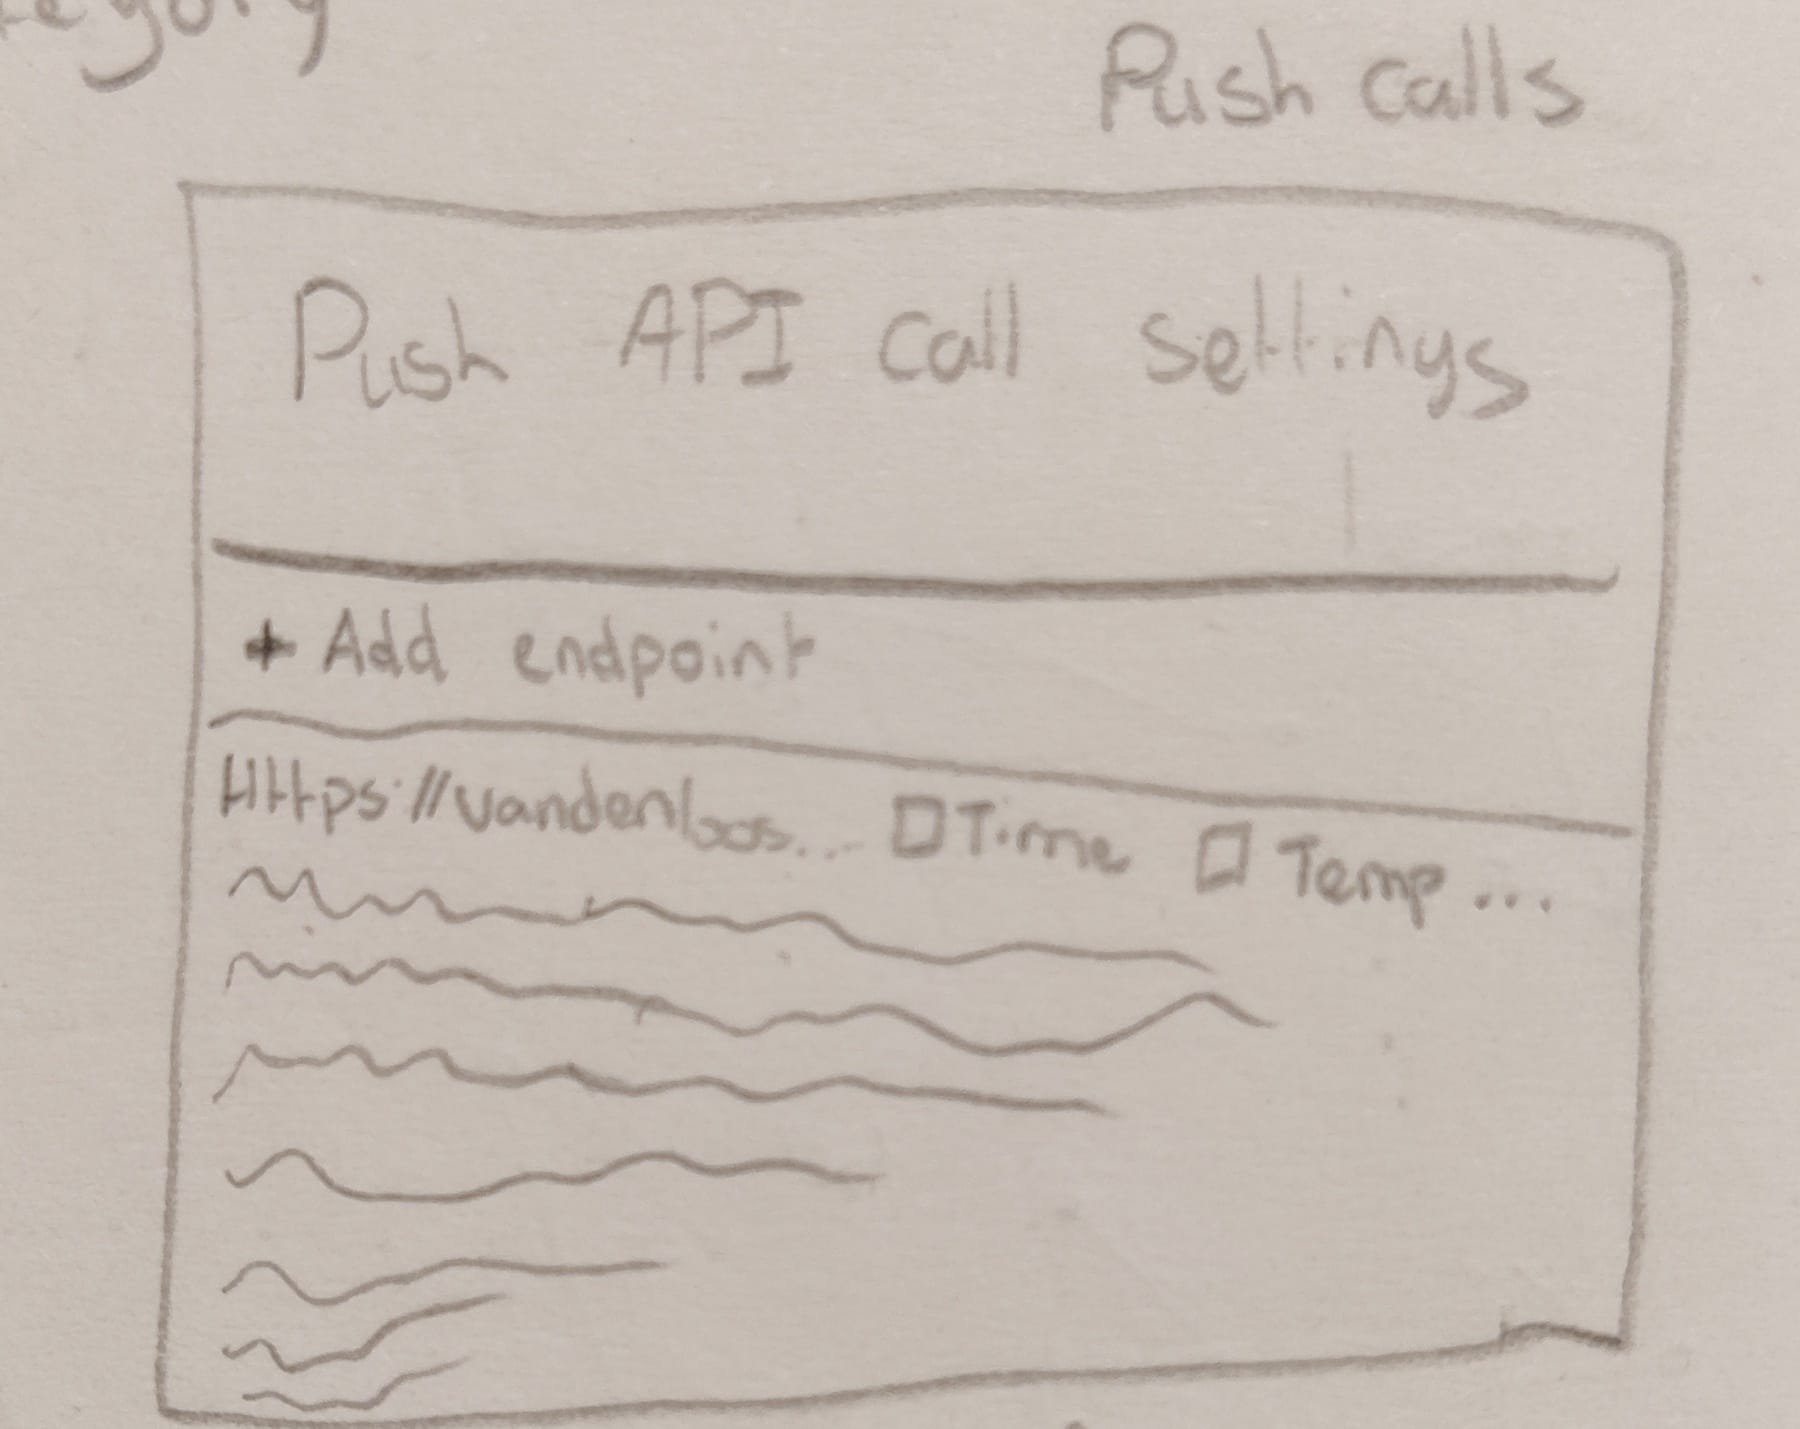 Push calls
Push API call settings
+ Add endpoint
Https://vandenboos... □ Time □ Temp ...